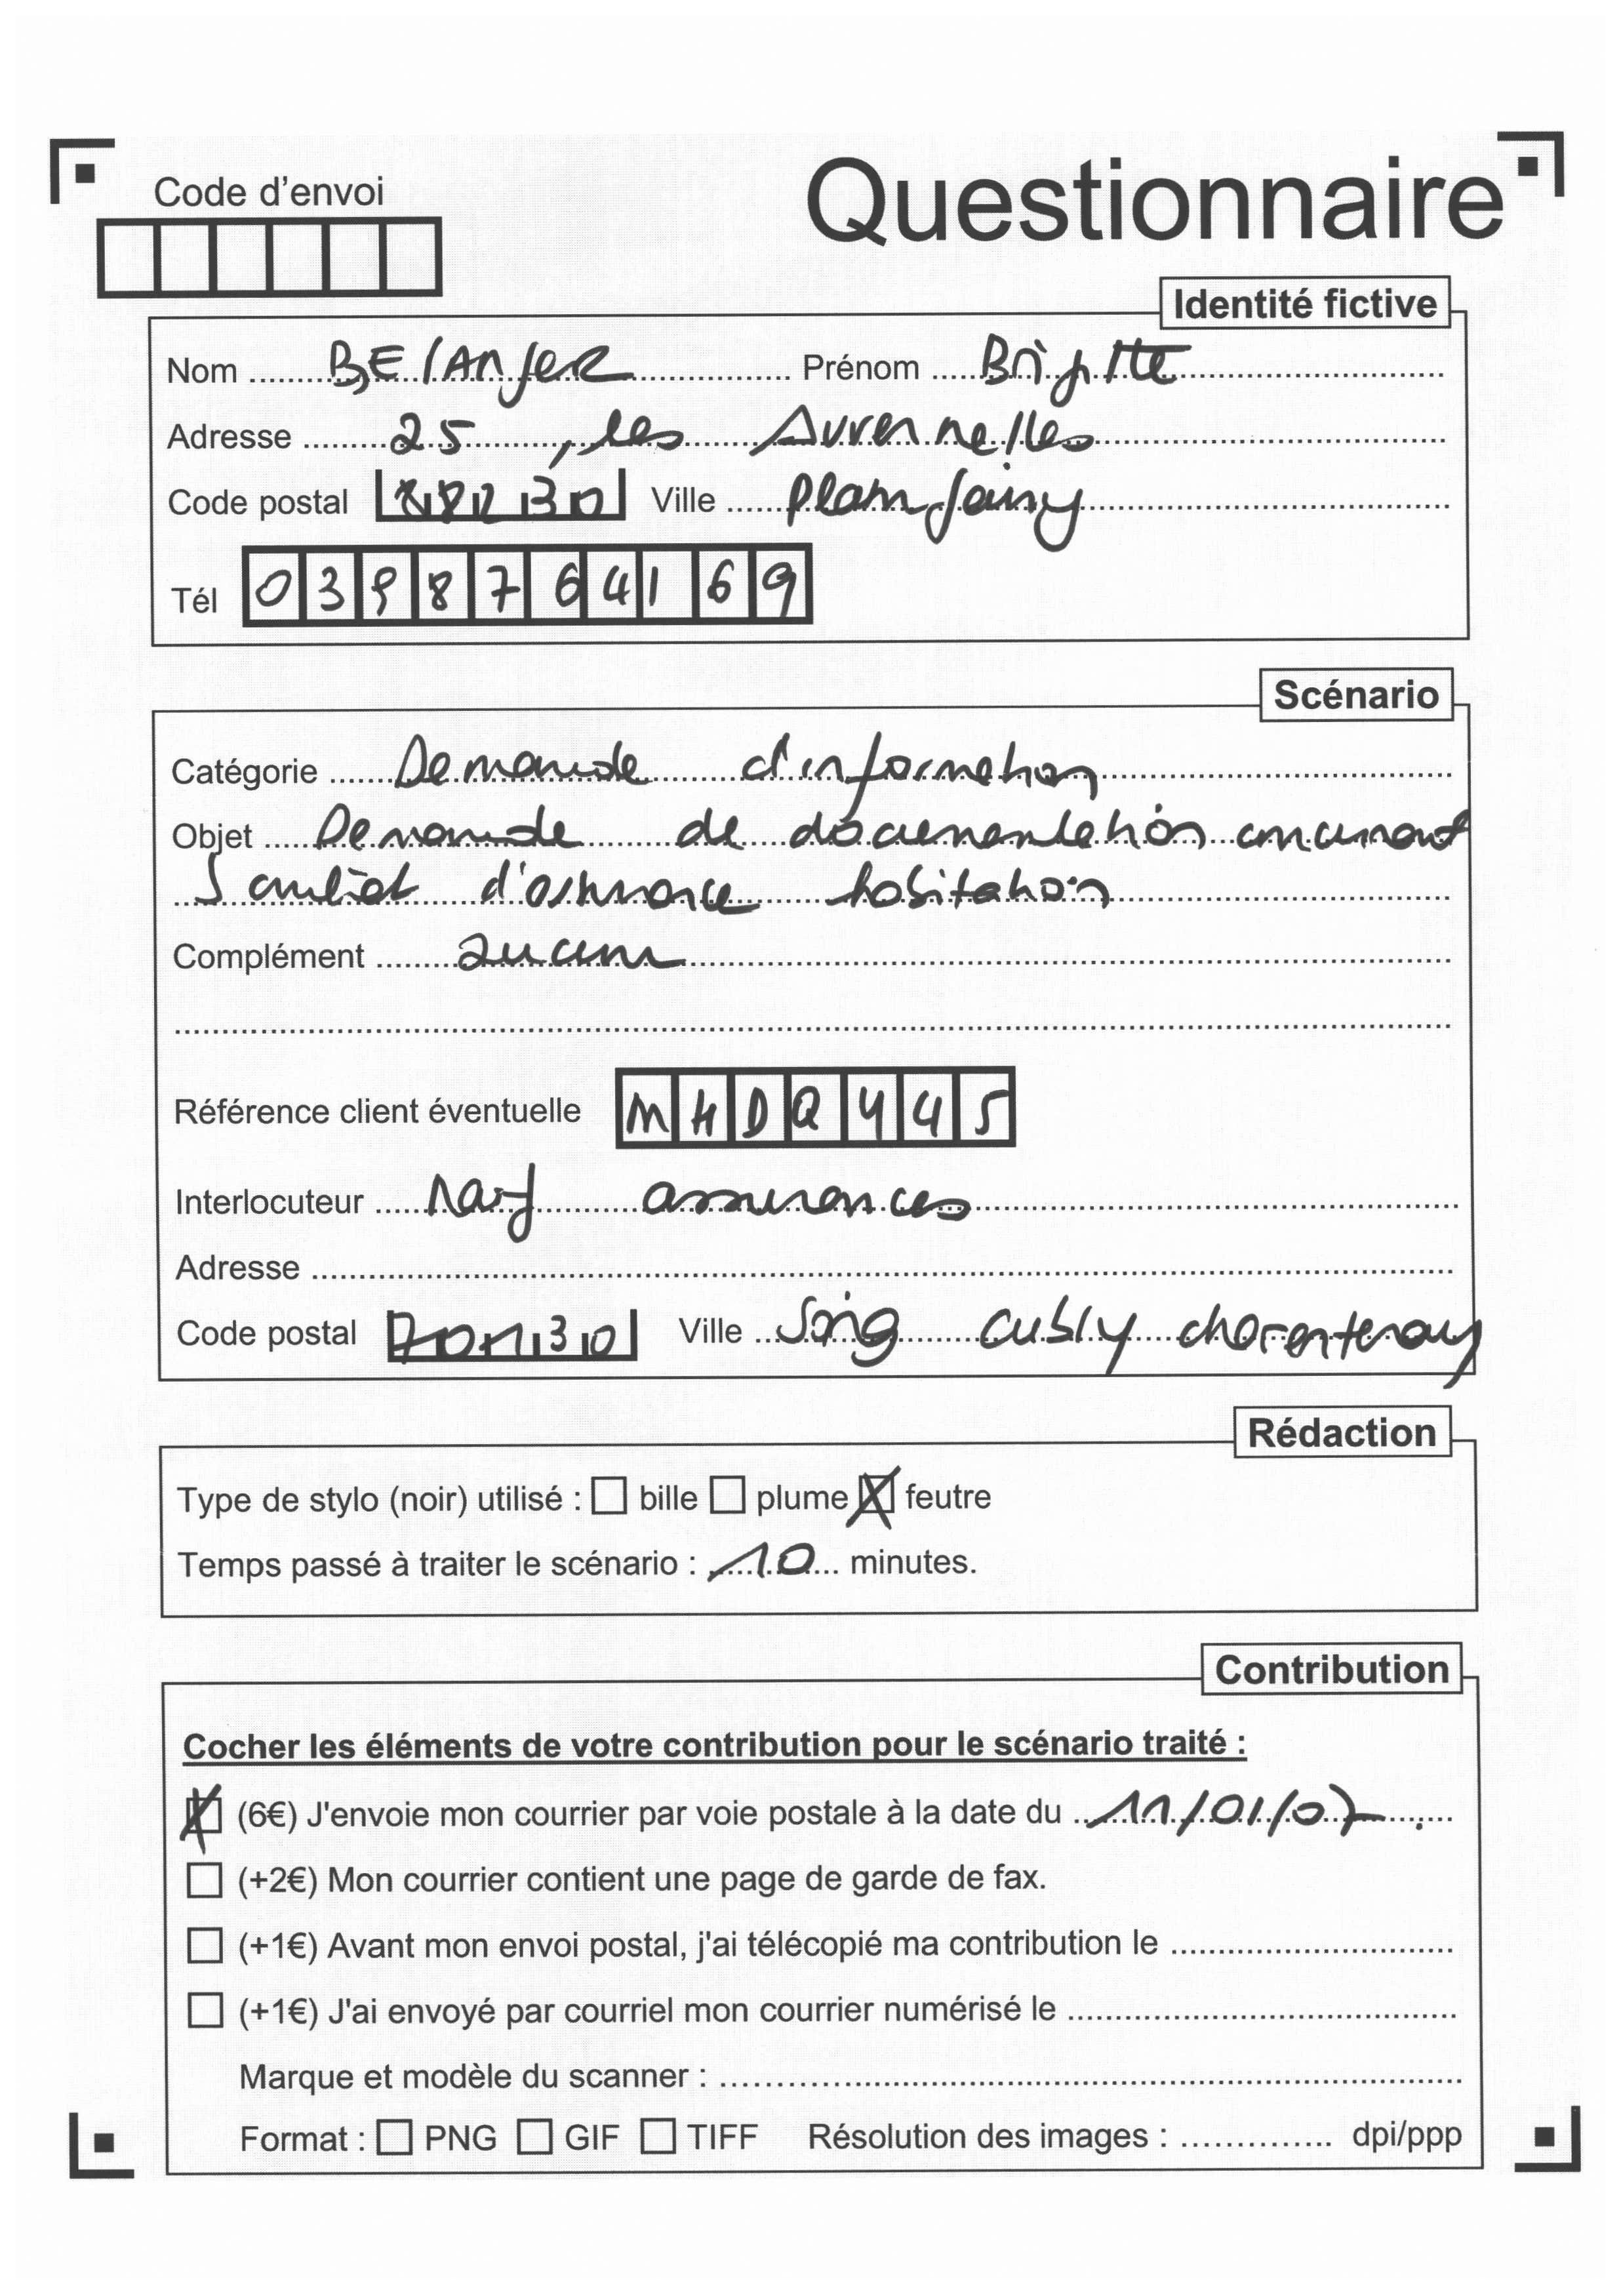 Code d'envoi
Questionnaire
Identité fictive
Nom BElAnjER Prénom Brigitte
Adresse 25, les Avrennelles
Code postal 88230 Ville Plainfaing
Tél 0398764169
Scénario
Catégorie Demande d'information
Objet Demande de documentation concernant
1 contrat d'assurance habitation
Complément aucun
Référence client éventuelle MHDQ445
Interlocuteur Narf assurances
Adresse
Code postal 70130 Ville Soing cubry charentenay
Rédaction
Type de stylo (noir) utilisé : bille plume feutre
Temps passé à traiter le scénario : 10 minutes.
Contribution
Cocher les éléments de votre contribution pour le scénario traité :
(6€) J'envoie mon courrier par voie postale à la date du 11/01/07
(+2€) Mon courrier contient une page de garde de fax.
(+1€) Avant mon envoi postal, j'ai télécopié ma contribution le
(+1€) J'ai envoyé par courriel mon courrier numérisé le
Marque et modèle du scanner :
Format : PNG GIF TIFF Résolution des images : dpi/ppp